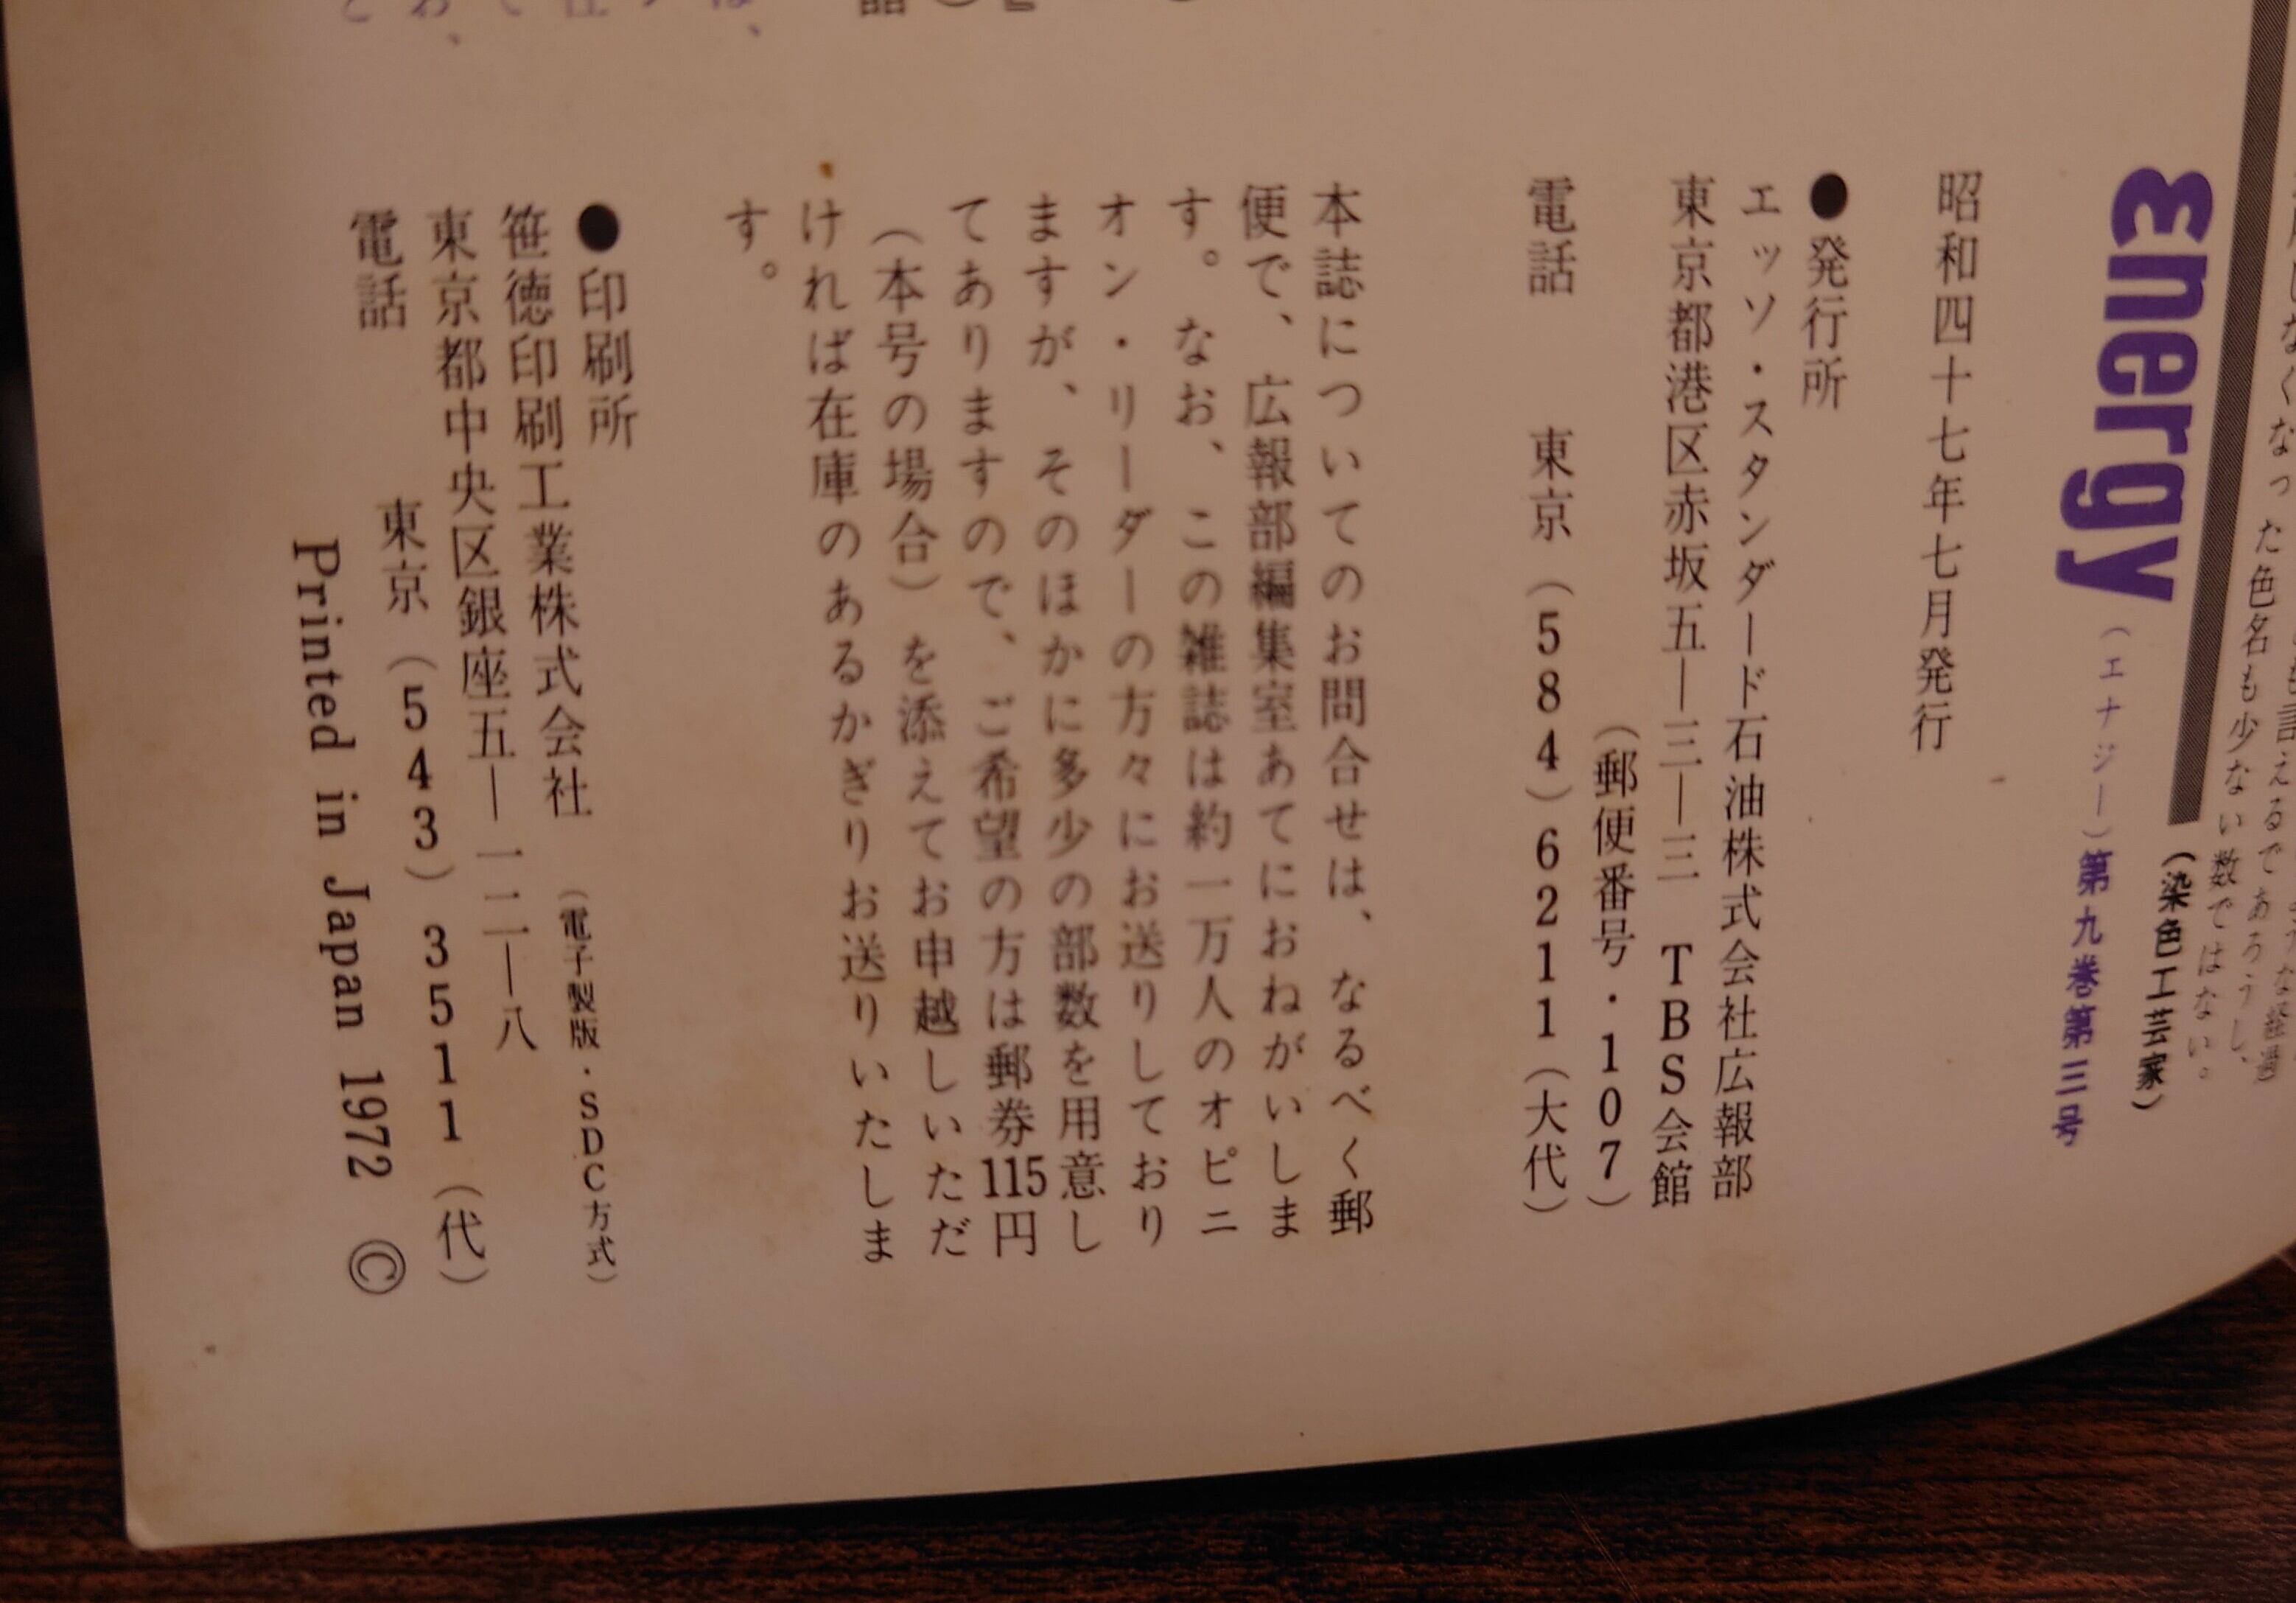 た色名も少ない数ではない。
(染色工芸家)
Energy(エナジー)第九巻第三号
昭和四十七年七月発行
●発行所
エッソ・スタンダード石油株式会社広報部
東京都港区赤坂五―三―三 TBS会館
(郵便番号・107)
電話 東京(584)6211(大代)
本誌についてのお問合せは、なるべく郵
便で、広報部編集室あてにおねがいしま
す。なお、この雑誌は約一万人のオピニ
オン・リーダーの方々にお送りしており
ますが、そのほかに多少の部数を用意し
てありますので、ご希望の方は郵券115円
(本号の場合)を添えてお申越しいただ
ければ在庫のあるかぎりお送りいたしま
す。
●印刷所
笹徳印刷工業株式会社(電子製版・SDC方式)
東京都中央区銀座五―一二―八
電話 東京(543)3511(代)
Printed in Japan 1972 ©